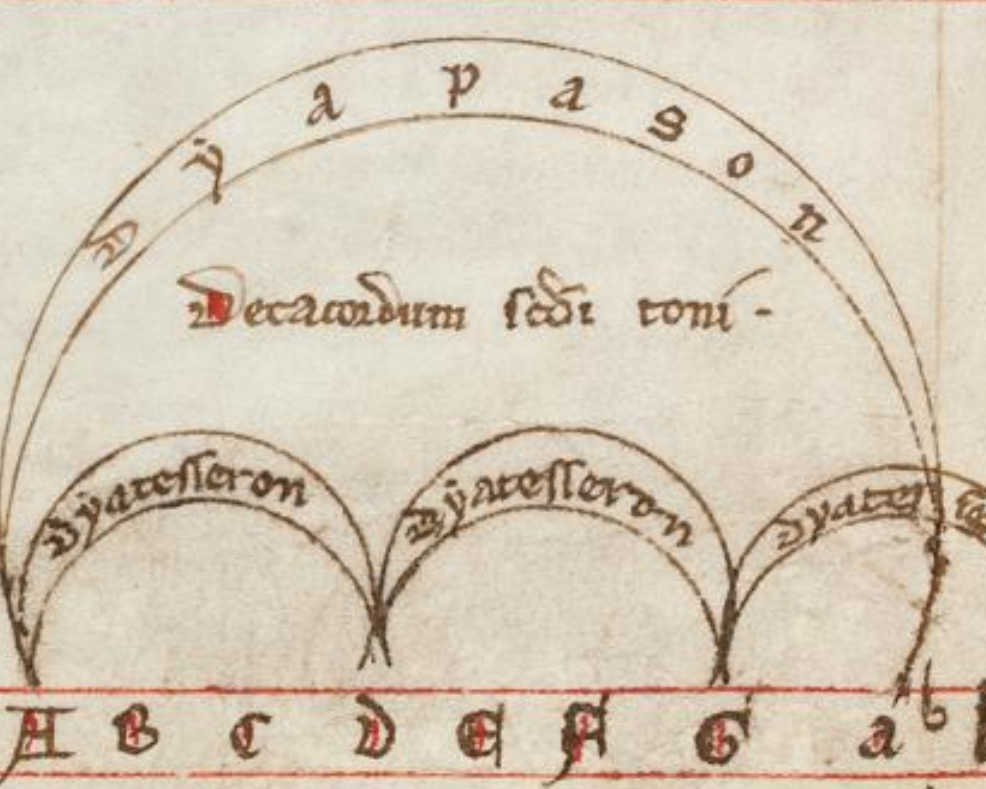 Dÿapason
Decacordum scdi toni·
Dÿatesseron Dÿatesseron dyates
A B C D E F G a b